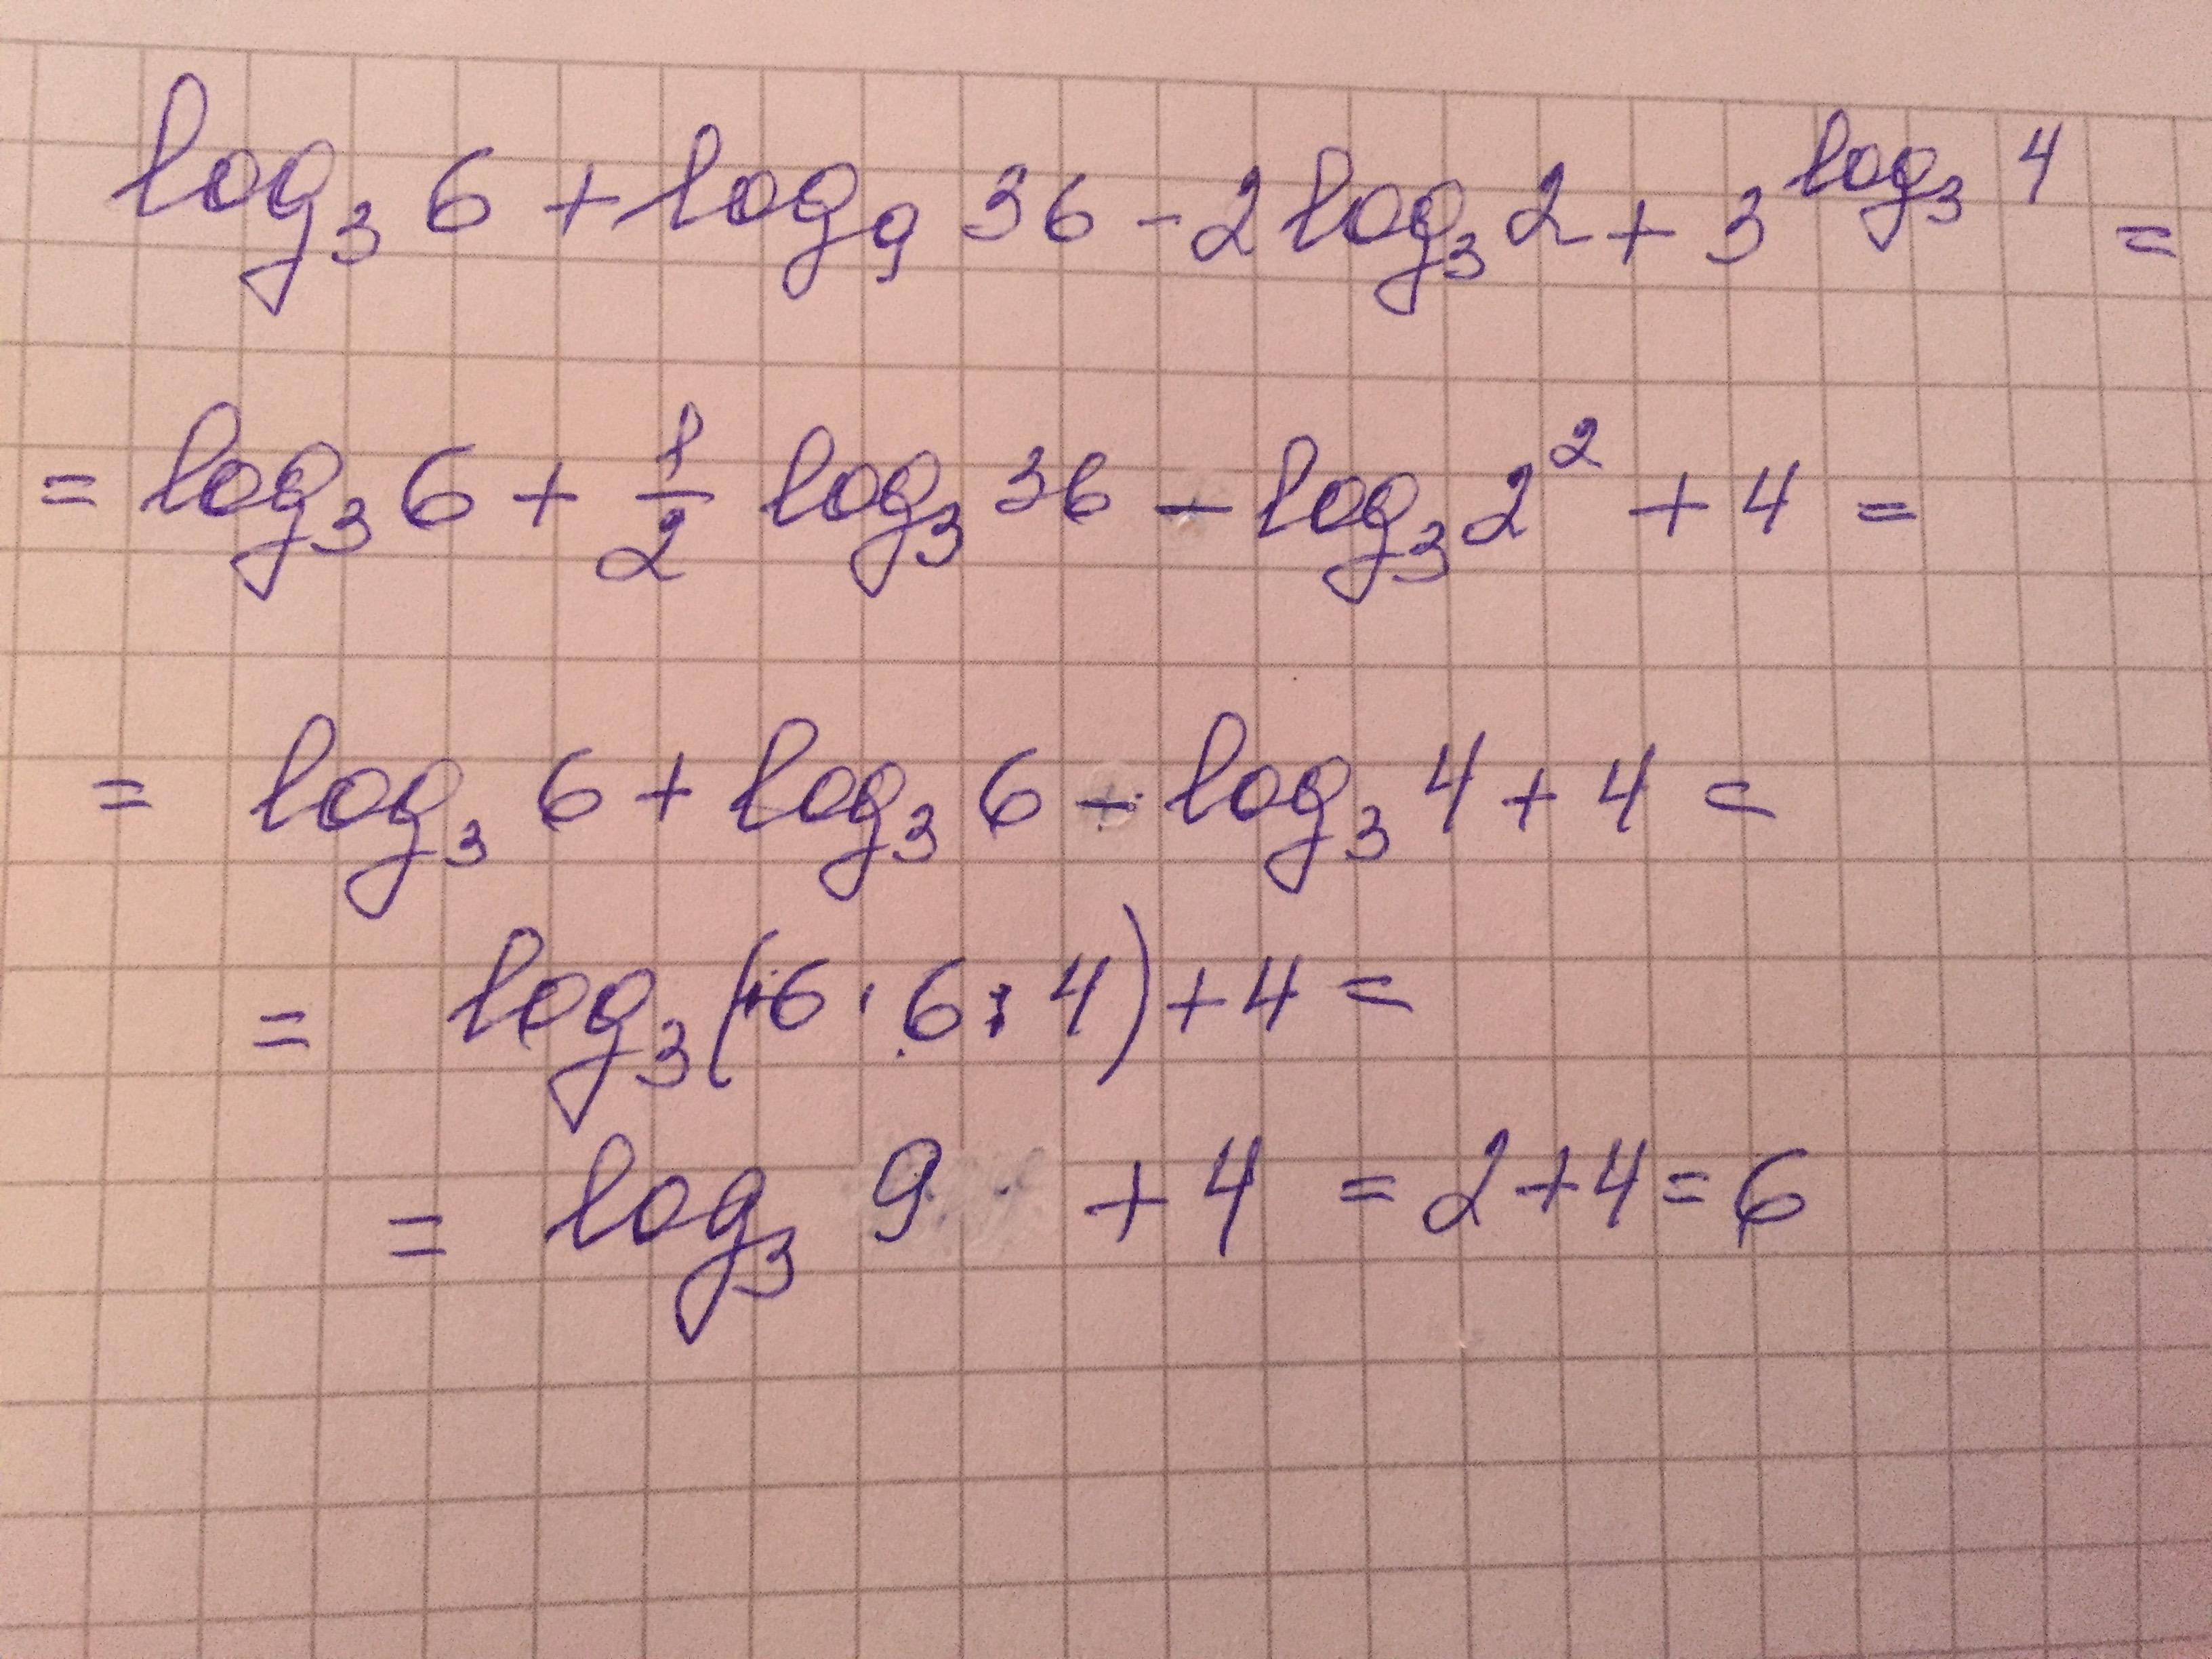 log₃ 6 + log₉ 36 - 2 log₃ 2 + 3^(log₃ 4) =
= log₃ 6 + 1/2 log₃ 36 - log₃ 2² + 4 =
= log₃ 6 + log₃ 6 - log₃ 4 + 4 =
= log₃ (6 · 6 : 4) + 4 =
= log₃ 9 + 4 = 2 + 4 = 6